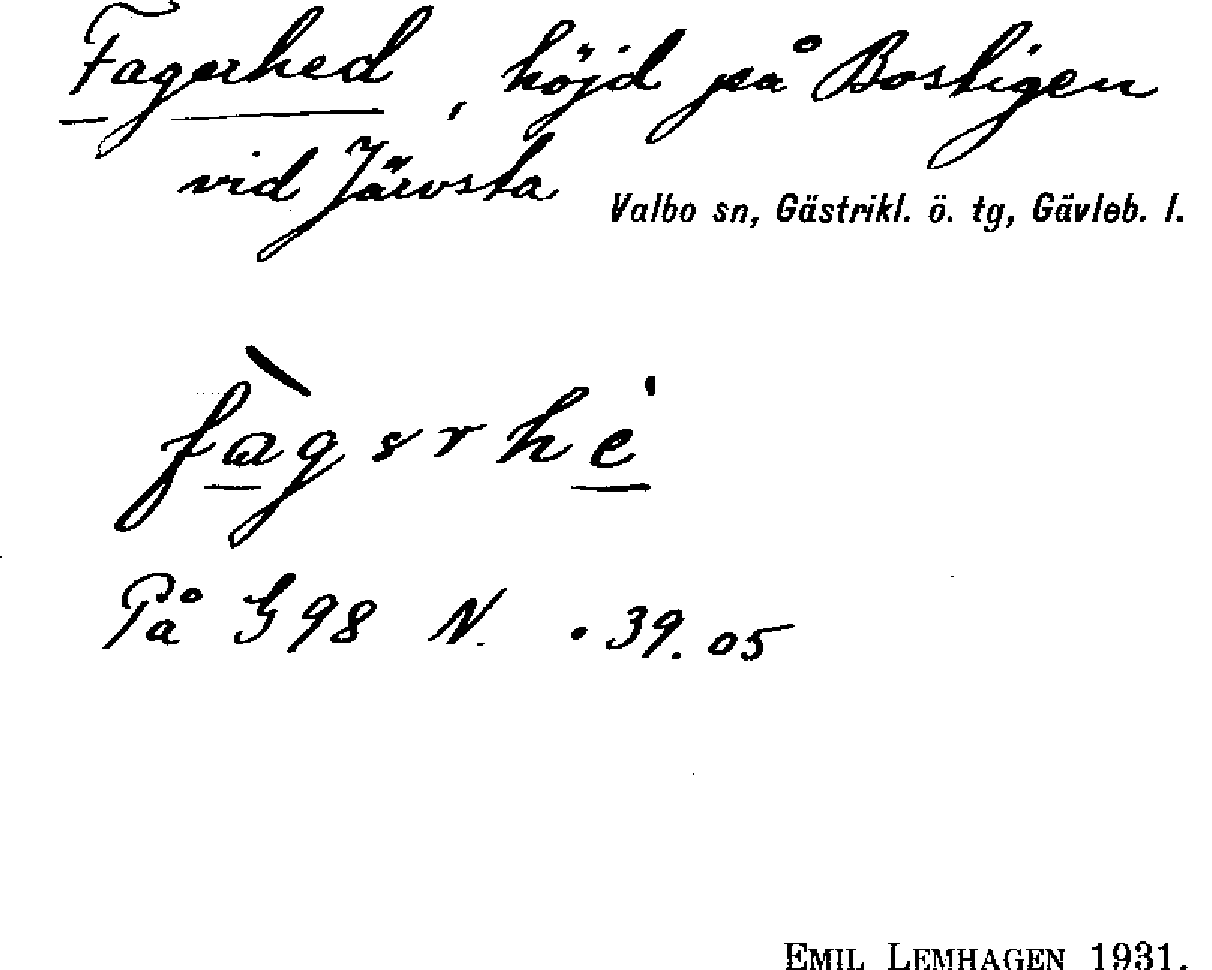 Fagerhed, höjd på Bostigen
vid Järvsta Valbo sn, Gästrikl. ö. tg, Gävleb. l.
fàgərhe̍
På G98 N. .39.05
EMIL LEMHAGEN 1931.